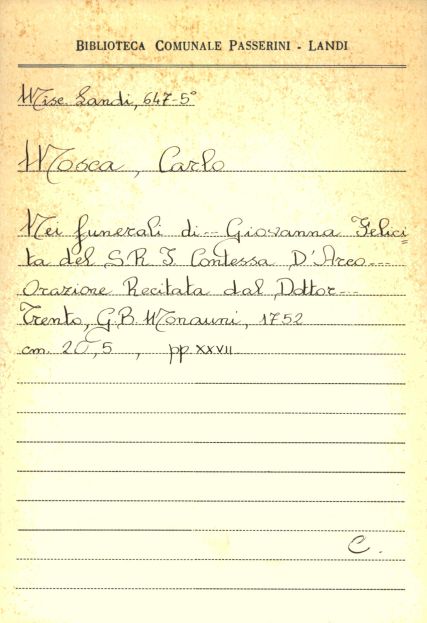 BIBLIOTECA COMUNALE PASSERINI - LANDI
Misc. Landi, 647-5°
Mosca, Carlo
Nei funerali di... Giovanna Felici=
ta del S R I Contessa D'Arco...
Orazione Recitata dal Dottor...
Trento, G.B. Monauni, 1752
cm. 20,5, pp. XXVII
C.